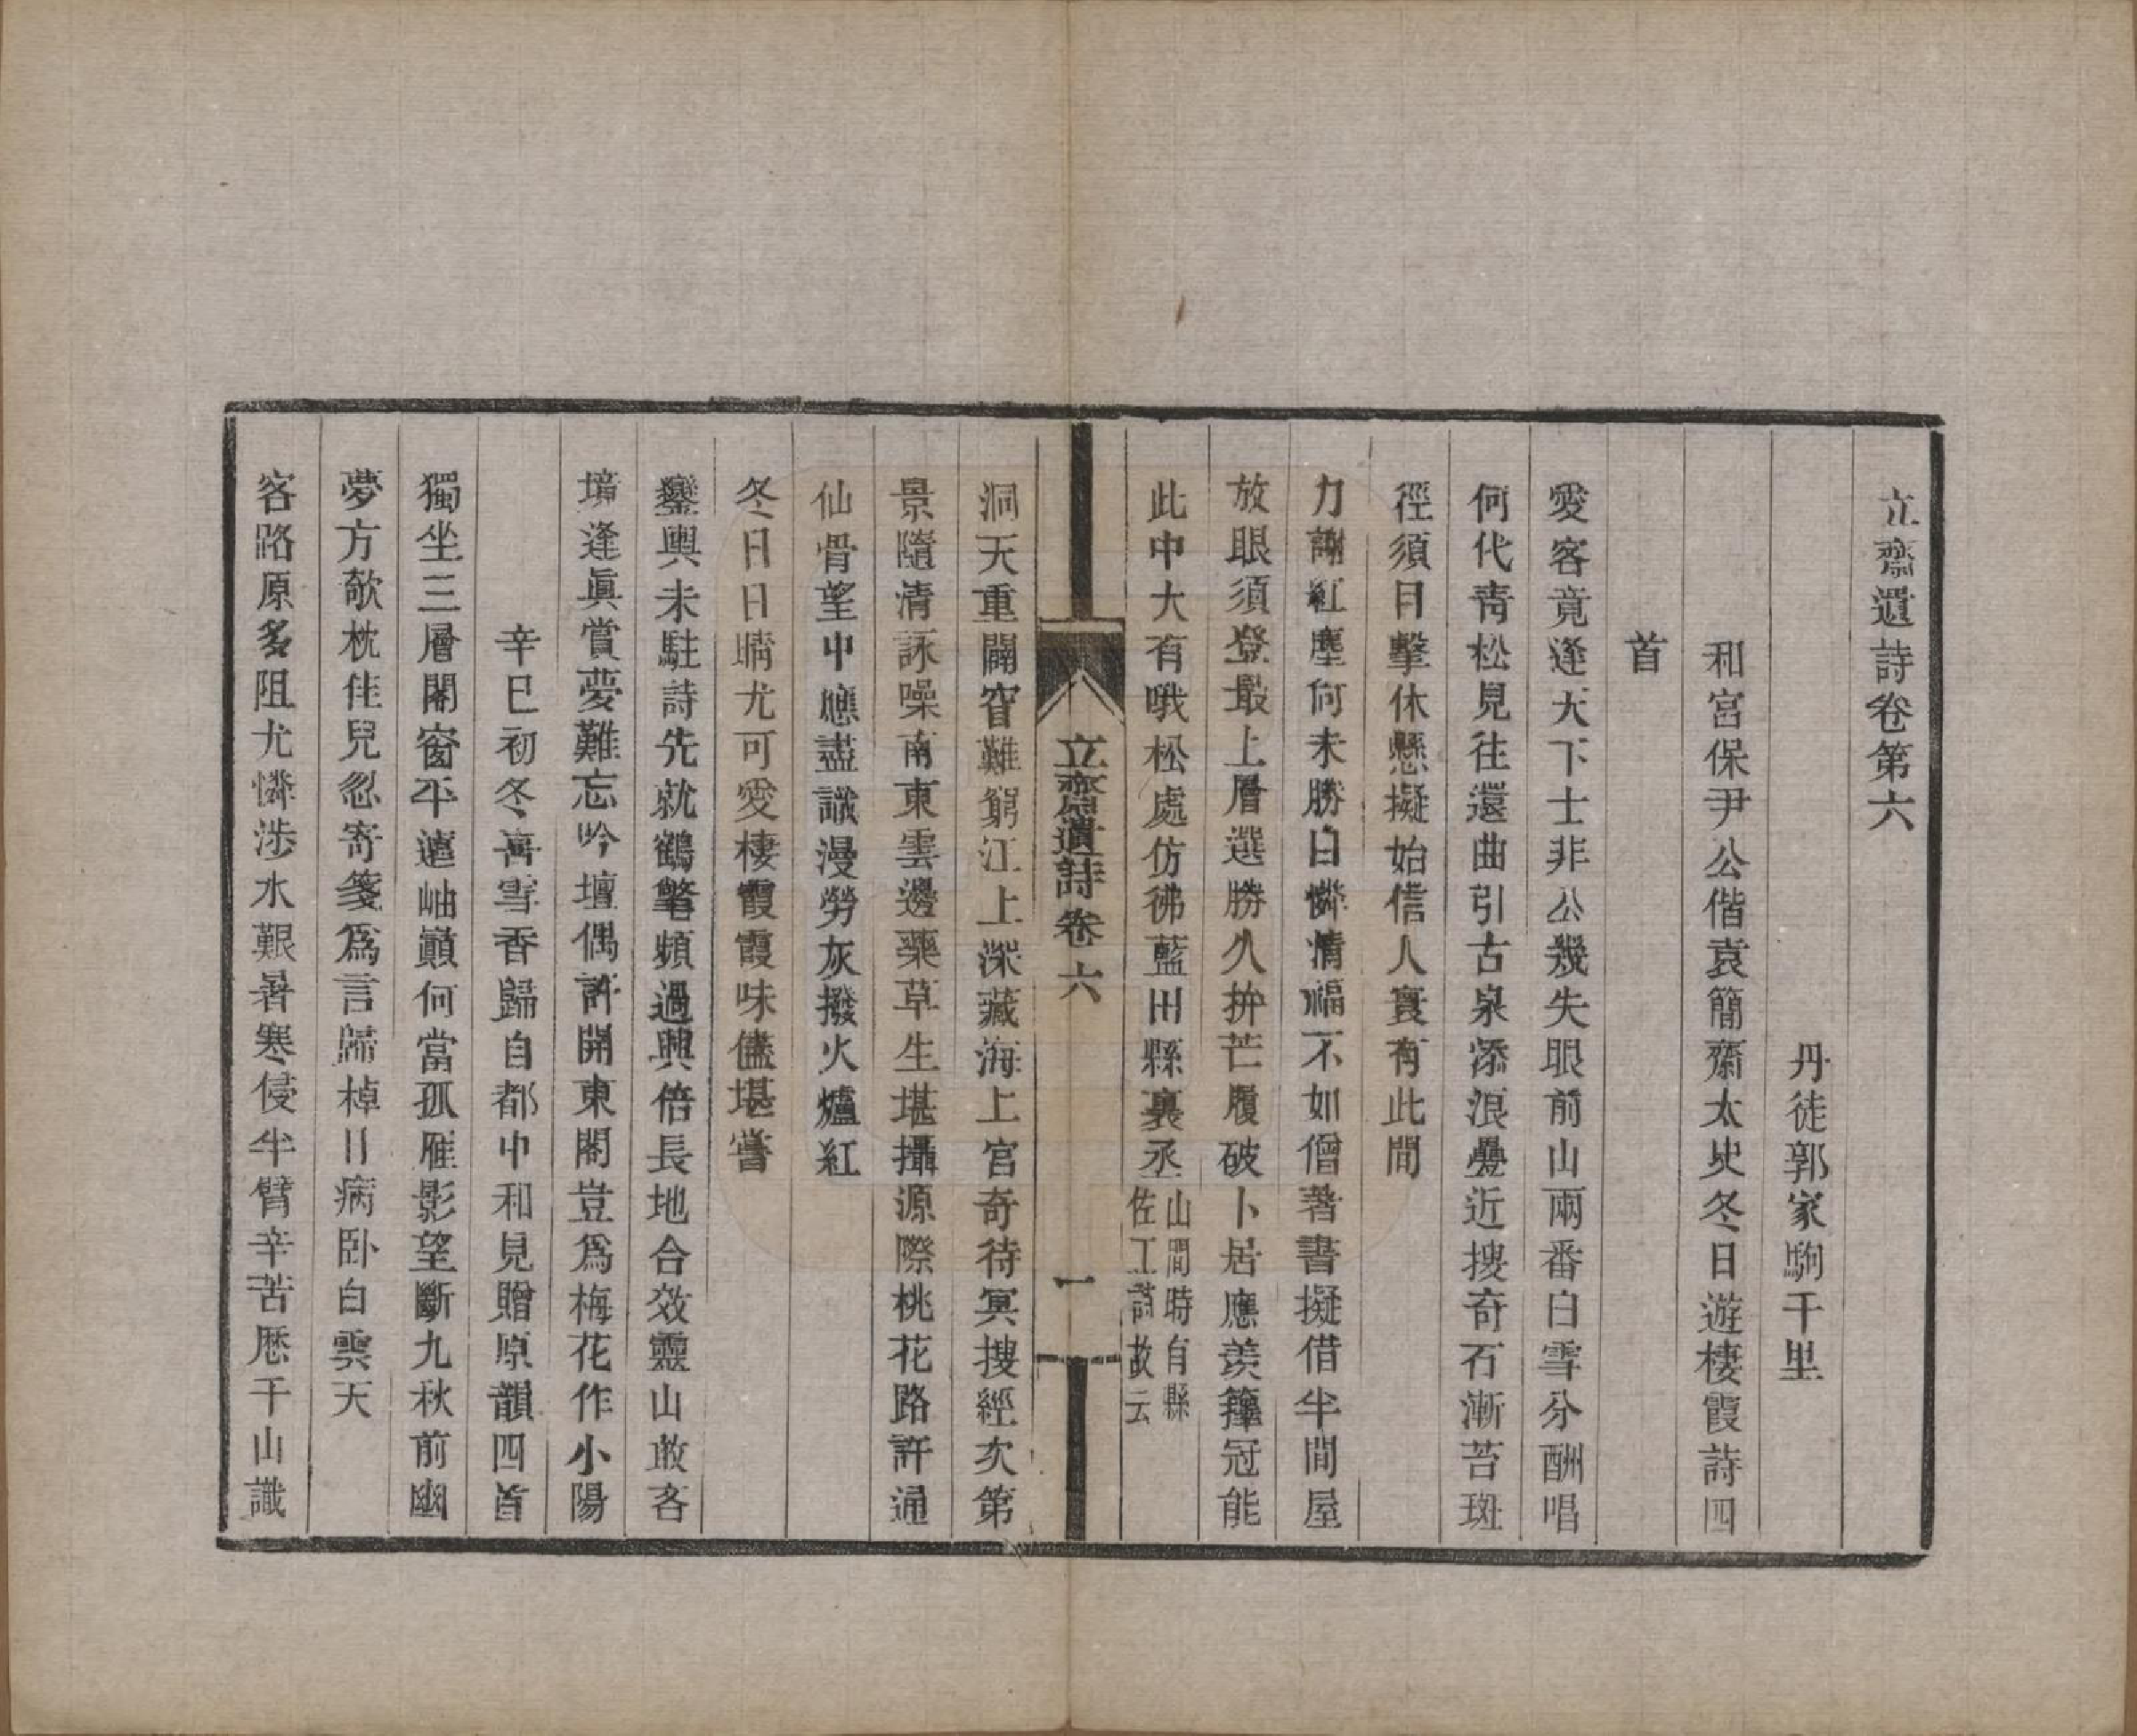 立齋遺詩卷第六
丹徒郭家駒千里
和宮保尹公偕袁簡齋太史冬日遊棲霞詩四
首
愛客竟逢天下士非公幾失眼前山兩番白雪分酬唱
何代靑松見往還曲引古泉添浪疊近搜奇石漸苔斑
徑須目擊休懸擬始信人寰有此間
力謝紅塵何未勝白憐清福不如僧著書擬借半間屋
放眼須登最上層選勝久拚芒履破卜居應羨籜冠能
此中大有哦松處仿彿藍田縣裏丞山間時有縣佐工詩故云
立齋遺詩卷六
一
洞天重闢窅難窮江上深藏海上宮奇待冥搜經次第
景隨清詠噪南東雲邊藥草生堪攝源際桃花路許通
仙骨望中應盡識漫勞灰撥火爐紅
冬日日晴尤可愛棲霞霞味儘堪嘗
鑾輿未駐詩先就鶴氅頻過興倍長地合效靈山敢吝
境逢眞賞夢難忘吟壇偶許開東閣豈爲梅花作小陽
辛巳初冬喜雪香歸自都中和見贈原韻四首
獨坐三層閣窗平遠岫巔何當孤雁影望斷九秋前幽
夢方欹枕佳兒忽寄箋爲言歸棹日病卧白雲天
客路原多阻尤憐涉水艱暑寒侵半臂辛苦歷千山讖